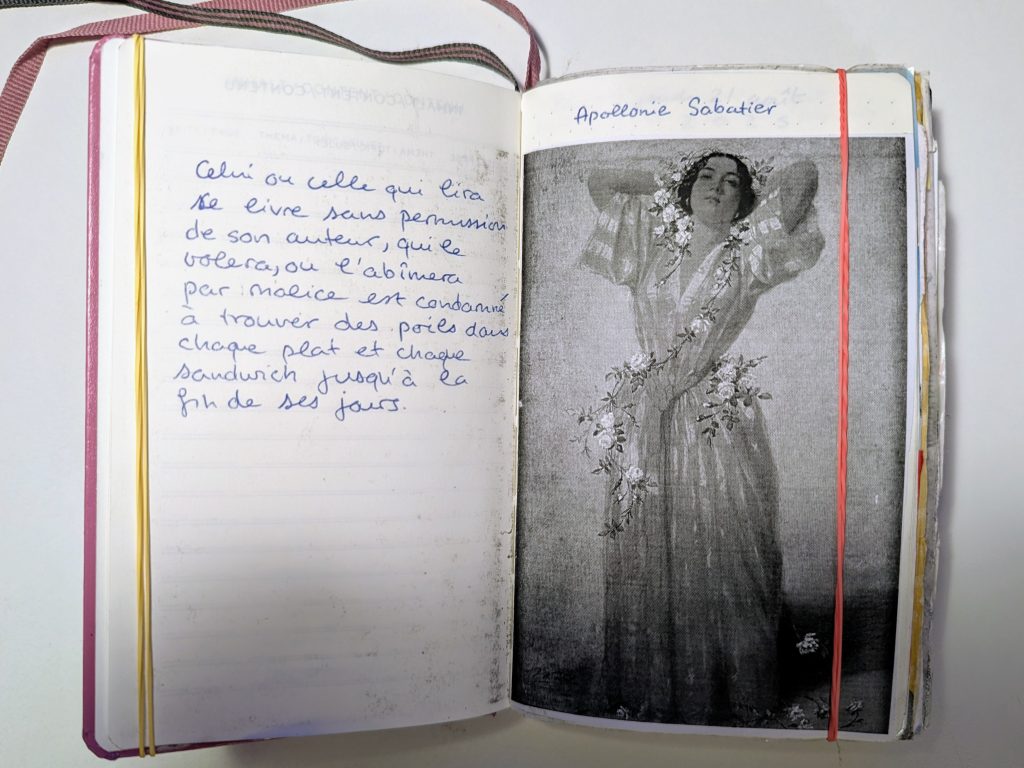 Celui ou celle qui lira
ce livre sans permission
de son auteur, qui le
volera, ou l'abîmera
par malice est condamné
à trouver des poils dans
chaque plat et chaque
sandwich jusqu'à la
fin de ses jours.
Apollonie Sabatier